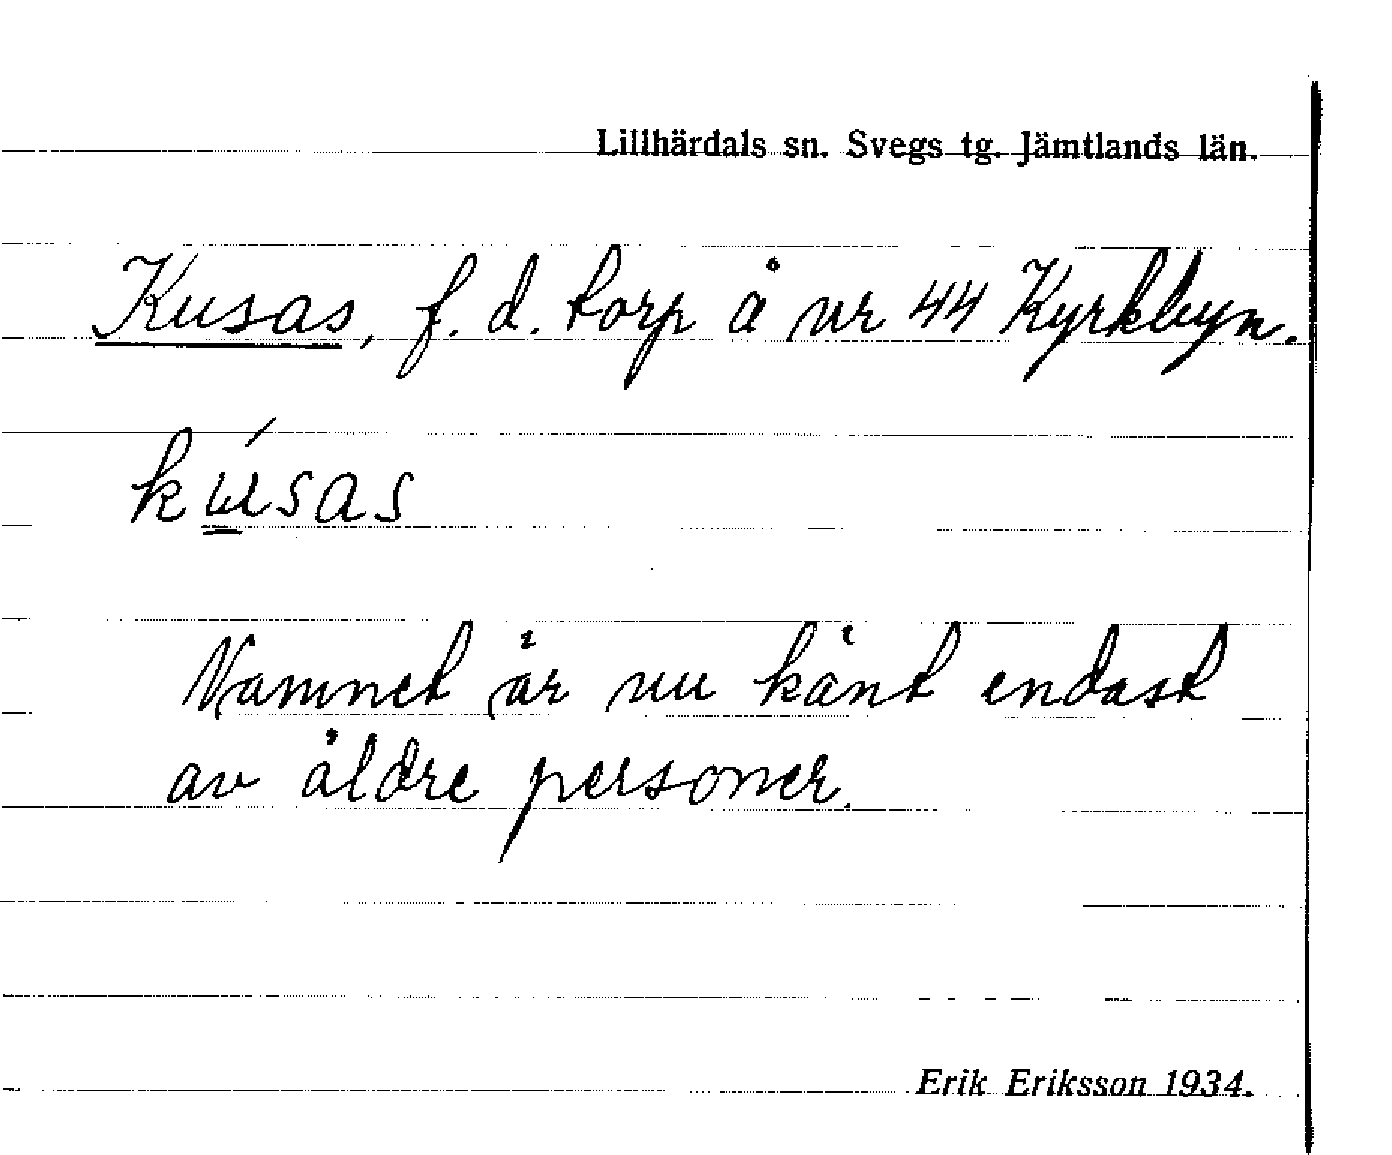 Lillhärdals sn. Svegs tg. Jämtlands län.
Kusas, f. d. torp å nr 44 Kyrkbyn.
kúsas
Namnet är nu känt endast
av äldre personer.
Erik Eriksson 1934.